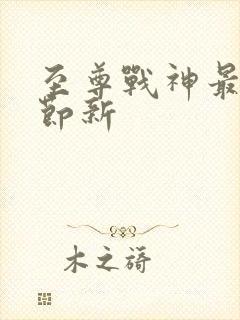 至尊戰神最
節新
木之蒳